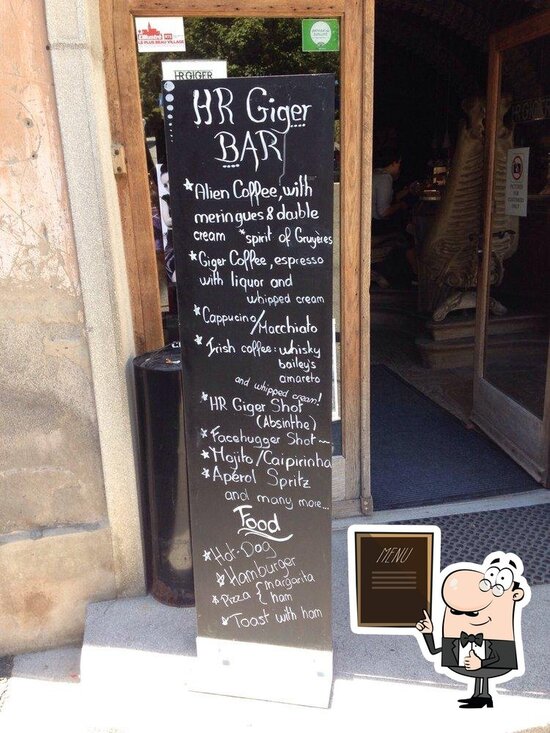 LE PLUS BEAU VILLAGE
HR GIGER
HR Giger
BAR
Alien Coffee, with
meringues & double
cream *spirit of Gruyères
*Giger Coffee, espresso
with liquor and
whipped cream
*Cappucino/
Macchiato
*Irish coffee: whisky
bailey's
amareto
and whipped cream!
*HR Giger Shot
(Absinthe)
*Facehugger Shot
*Mojito/Caipirinha
*Apérol Spritz
and many more...
Food
*Hot-Dog
*Hamburger
*Pizza { margarita
ham
*Toast with ham
MENU
PICTURES
FOR
CUSTOMERS
ONLY